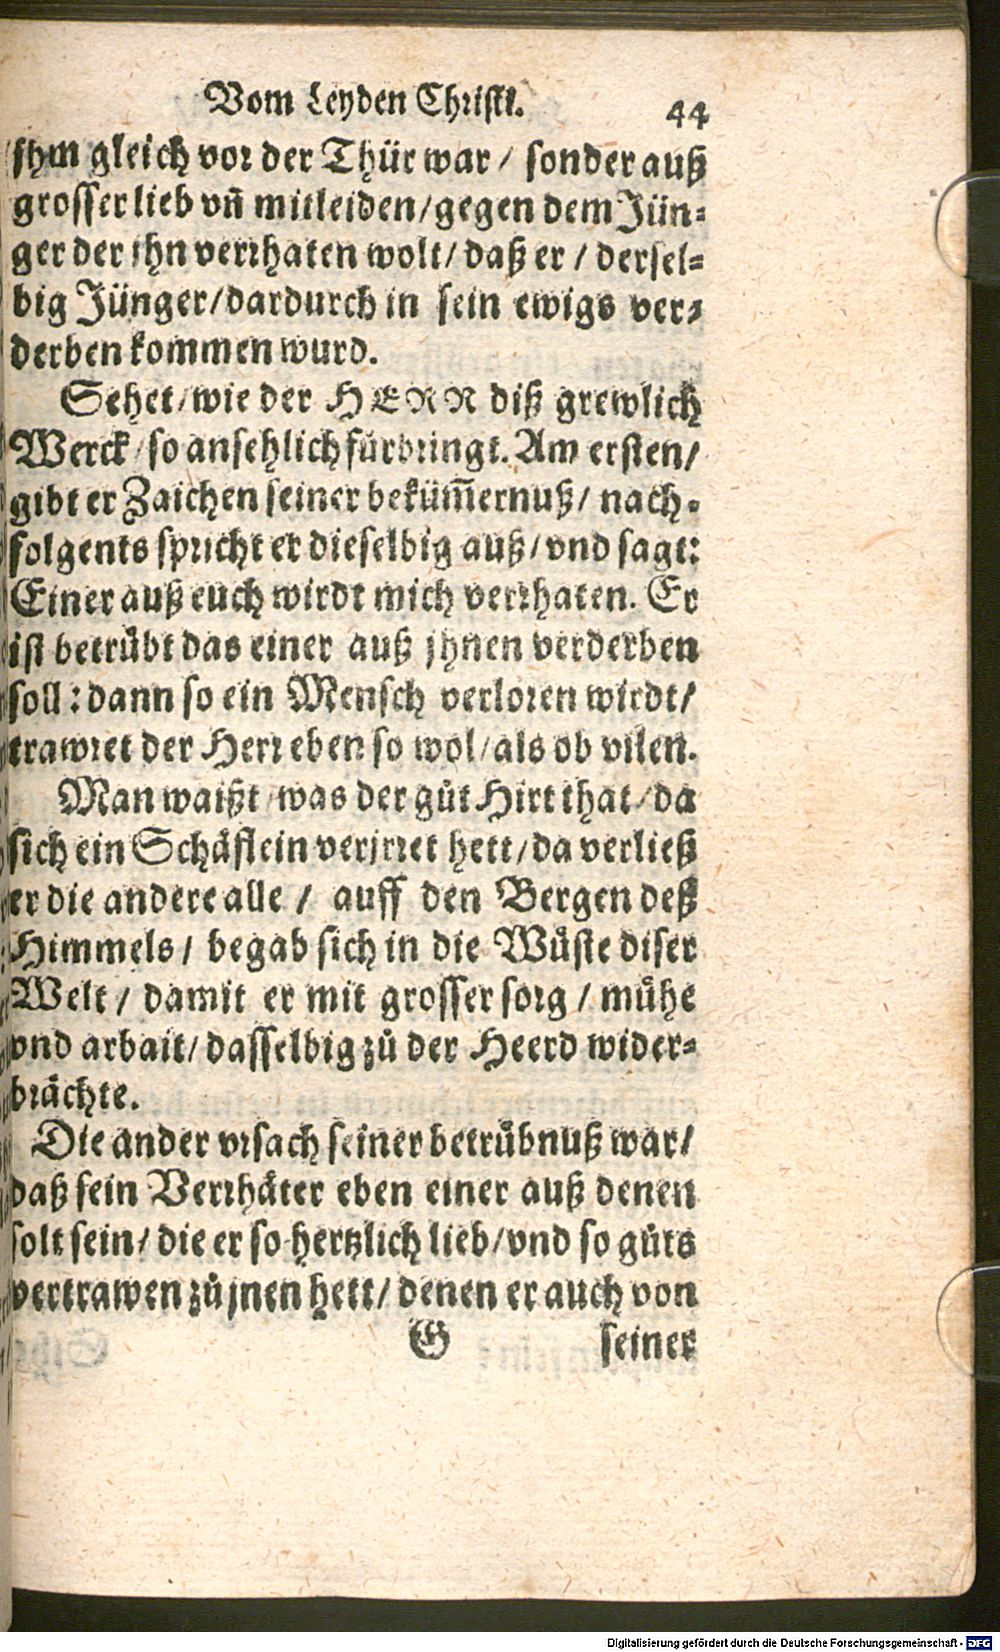 Vom Leyden Christi. 44
jhm gleich vor der Thür war / sonder auß
grosser lieb vñ mitleiden / gegen dem Jün-
ger der jhn verrhaten wolt / daß er / dersel-
big Jünger / dardurch in sein ewigs ver-
derben kommen wurd.
Sehet / wie der HERR diß grewlich
Werck / so ansehlich fürbringt. Am ersten /
gibt er Zaichen seiner beküm̃ernuß / nach-
folgents spricht er dieselbig auß / vnd sagt:
Einer auß euch wirdt mich verrhaten. Er
ist betrübt das einer auß jhnen verderben
soll: dann so ein Mensch verloren wirdt /
trawret der Herr eben so wol / als ob vilen.
Man waißt / was der gůt Hirt that / da
sich ein Schäflein verjrret hett / da verließ
er die andere alle / auff den Bergen deß
Himmels / begab sich in die Wüste diser
Welt / damit er mit grosser sorg / mühe
vnd arbait / dasselbig zů der Heerd wider-
brächte.
Die ander vrsach seiner betrübnuß war /
daß sein Verrhäter eben einer auß denen
solt sein / die er so hertzlich lieb / vnd so gůts
vertrawen zů jnen hett / denen er auch von
G seiner
Digitalisierung gefördert durch die Deutsche Forschungsgemeinschaft - DFG